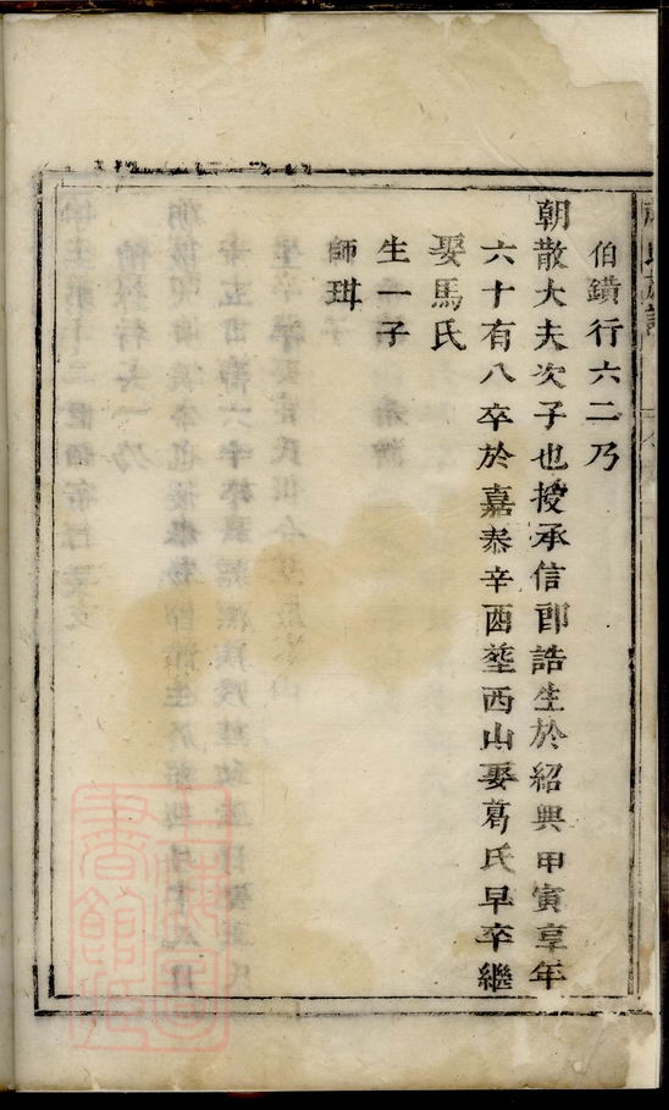 伯鐄行六二乃
朝散大夫次子也授承信郎誥生於紹興甲寅享年
六十有八卒於嘉泰辛酉塟西山娶葛氏早卒繼
娶馬氏
生一子
師琪